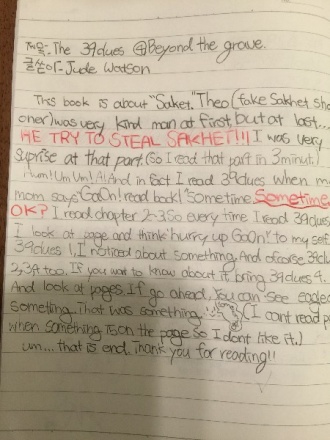 제목-The 39clues ④Beyond the grave.
글쓴이-Jude Watson
This book is about "Saket." Theo(fake Sakhet sh
oner)was very kind man at first, but at last...
HE TRY TO STEAL SAKHET!!! I was very
suprise at that part. (So I read that part in 3minut.)
Um! Um! Um! And in fact I read 39clues when m
mom says "GaOn! read back!" Sometime. Sometime
OK? I read chapter 20-30 so every time I read 39clues
I look at page and think "hurry up GaOn!" to my self
39clues !, I noticed about something. And ofcorse 39clu
2,3,4 too. If you wat to know about it bring 39clues 4.
And look at pages. If go ahead, You can see eagle
something. That was something. (I cant read p
when something is on the page so I dont like it.)
um... that is end. Thank you for reading!!